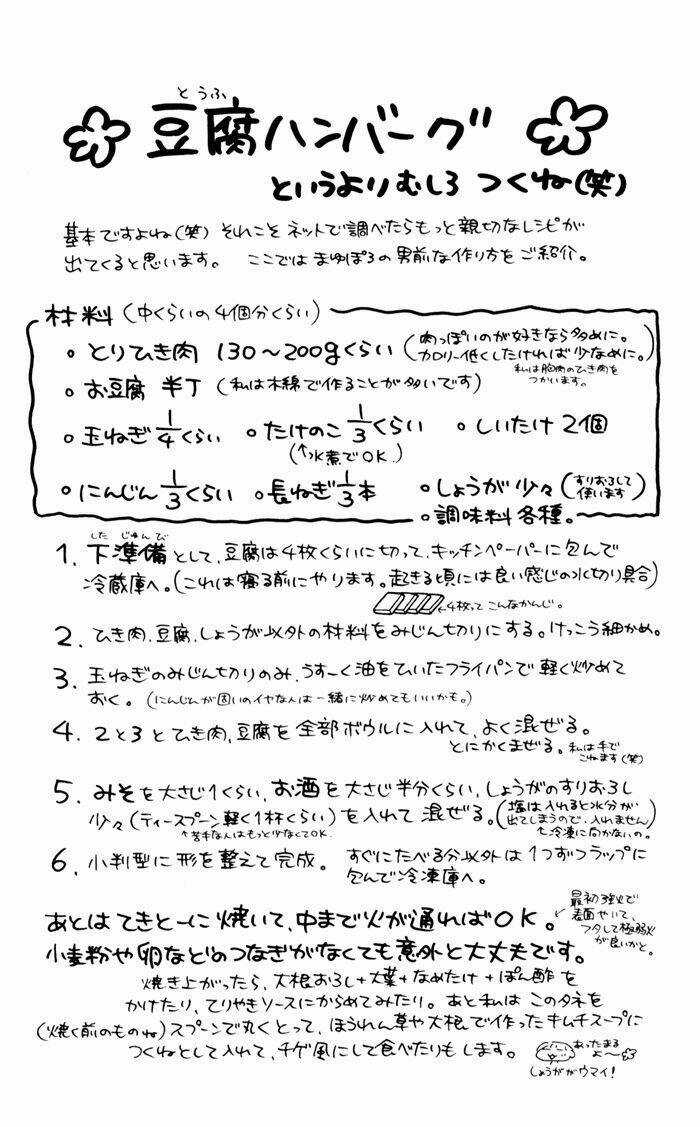 とうふ
豆腐ハンバーグ
というよりむしろ つくね(笑)
基本ですよね(笑) それこそ ネットで調べたらもっと親切なレシピが
出てくると思います。 ここでは まゆぽろの男前な作り方をご紹介。
材料(中くらいの4個分くらい)
。とりひき肉 130〜200gくらい(肉っぽいのが好きなら多めに。
カロリー低くしたければ少なめに。)
私は胸肉のひき肉を
つかいます。
。お豆腐 半丁(私は木綿で作ることが多いです)
。玉ねぎ1/4くらい 。たけのこ1/3くらい 。しいたけ2個
(↑水煮でOK.)
。にんじん1/3くらい 。長ねぎ1/3本 。しょうが少々(すりおろして
使います)
。調味料各種。
したじゅんび
1. 下準備として、豆腐は4枚くらいに切って、キッチンペーパーに包んで
冷蔵庫へ。(これは寝る前にやります。起きる頃には良い感じの水切り具合)
←4枚ってこんなかんじ。
2. ひき肉、豆腐、しょうが以外の材料をみじん切りにする。けっこう細かめ。
3. 玉ねぎのみじん切りのみ、うすーく油をひいたフライパンで軽く炒めて
おく。(にんじんが固いのイヤな人は一緒に炒めてもいいかも。)
4. 2と3とひき肉、豆腐を全部ボウルに入れて、よく混ぜる。
とにかくまぜる。私は手で
こねます(笑)
5. みそを大さじ1くらい、お酒を大さじ半分くらい、しょうがのすりおろし
少々(ティースプーン軽く1杯くらい)を入れて混ぜる。(塩は入れると水分が
出てしまうので、入れません)
↑苦手な人はもっと少なくてOK.
↑冷凍に向かないの。
6. 小判型に形を整えて完成。 すぐにたべる分以外は1つずつラップに
包んで冷凍庫へ。
あとはてきとーに焼いて、中まで火が通ればOK。
最初強火で
表面やいて、
フタして極弱火
が良いかと。
小麦粉や卵などのつなぎがなくても意外と大丈夫です。
焼き上がったら、大根おろし+大葉+なめたけ+ぽん酢を
かけたり、てりやきソースにからめてみたり。あと私はこのタネを
(焼く前のものね)スプーンで丸くとって、ほうれん草や大根で作ったキムチスープに
つくねとして入れて、チゲ風にして食べたりもします。
あったまる
よ〜
しょうががウマイ!